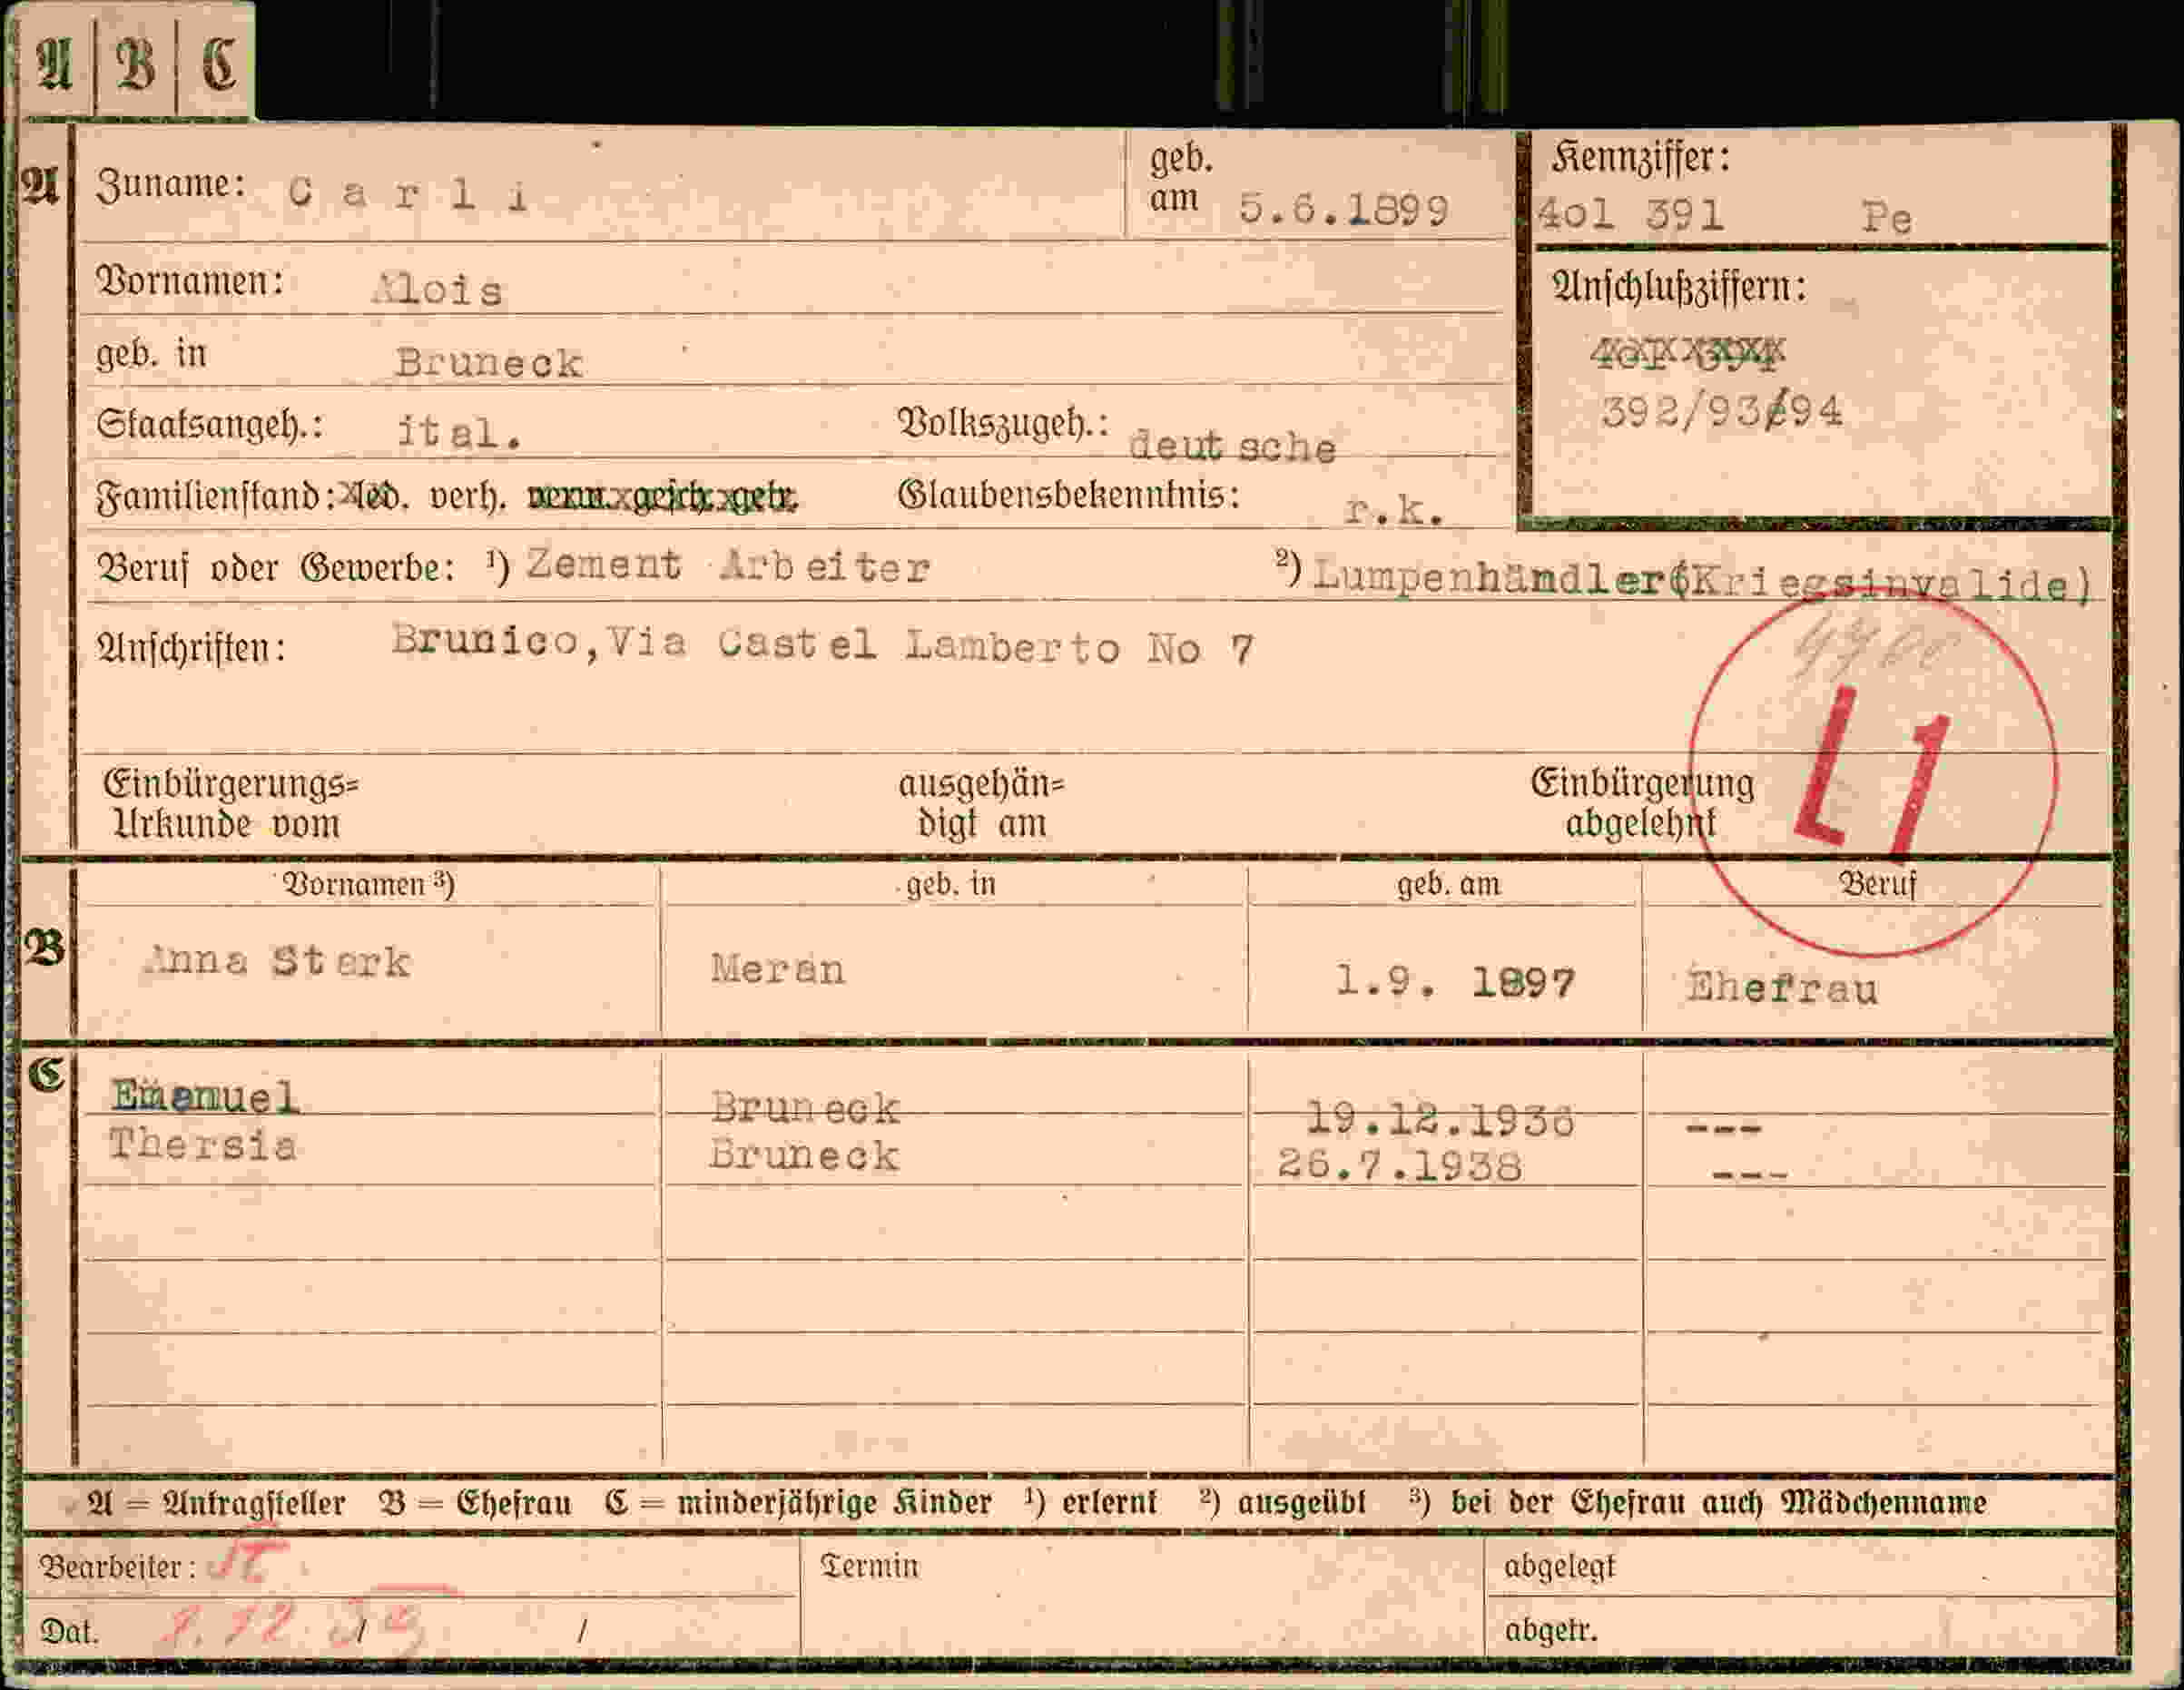 A B C
A Zuname: Carli geb. am 5.6.1899 Kennziffer: 4o1 391 Pe
Vornamen: Alois Anschlußziffern:
geb. in Bruneck
392/93/94
Staatsangeh.: ital. Volkszugeh.: deutsche
Familienstand: led. verh. verw. gesch. getr. Glaubensbekenntnis: r.k.
Beruf oder Gewerbe: ¹) Zement Arbeiter ²) Lumpenhändler(Kriegsinvalide)
Anschriften: Brunico,Via Castel Lamberto No 7
L1
Einbürgerungs= ausgehän= Einbürgerung
Urkunde vom digt am abgelehnt
Vornamen ³) geb. in geb. am Beruf
B Anna Stark Meran 1.9. 1897 Ehefrau
C Emanuel Bruneck 19.12.1936 ---
Thersia Bruneck 26.7.1938 ---
A = Antragsteller B = Ehefrau C = minderjährige Kinder ¹) erlernt ²) ausgeübt ³) bei der Ehefrau auch Mädchenname
Bearbeiter: Termin abgelegt
Dat. 12. 39 / / abgetr.